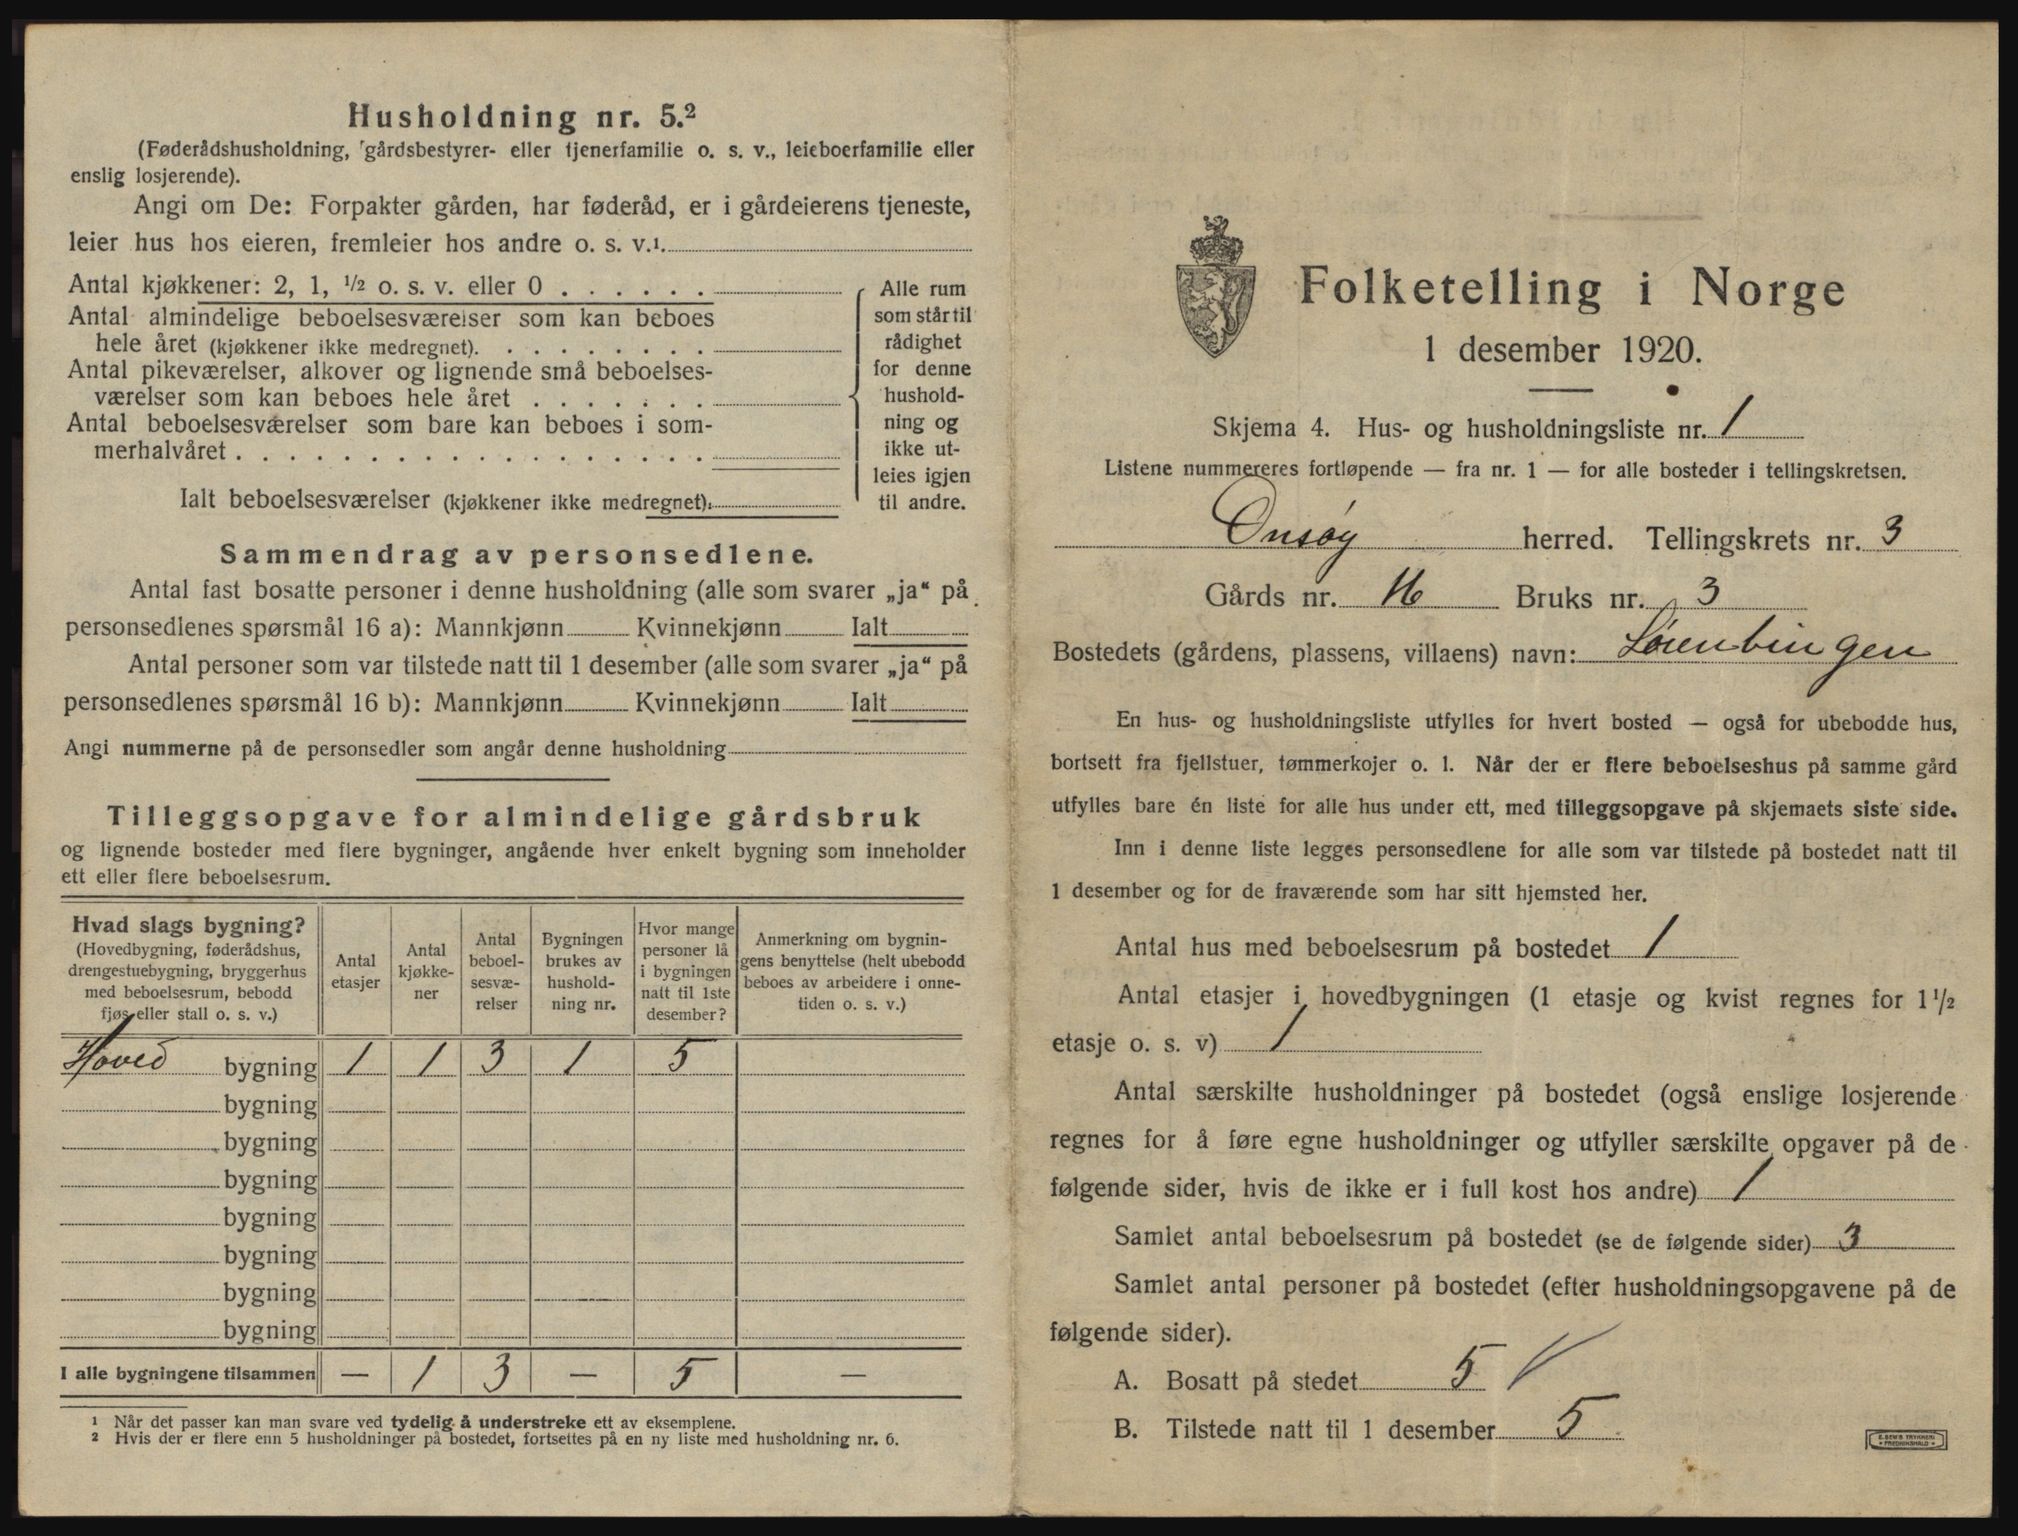 Husholdning nr. 5.²
(Føderådshusholdning, gårdsbestyrer- eller tjenerfamilie o. s. v., leieboerfamilie eller
enslig losjerende).
Angi om De: Forpakter gården, har føderåd, er i gårdeierens tjeneste,
leier hus hos eieren, fremleier hos andre o. s. v.¹
Antal kjøkkener: 2, 1, ½ o. s. v. eller 0
Antal almindelige beboelsesværelser som kan beboes
hele året (kjøkkener ikke medregnet).
Antal pikeværelser, alkover og lignende små beboelses-
værelser som kan beboes hele året
Antal beboelsesværelser som bare kan beboes i som-
merhalvåret
Ialt beboelsesværelser (kjøkkener ikke medregnet):
Alle rum
som står til
rådighet
for denne
hushold-
ning og
ikke ut-
leies igjen
til andre.
Sammendrag av personsedlene.
Antal fast bosatte personer i denne husholdning (alle som svarer „ja“ på
personsedlenes spørsmål 16 a): Mannkjønn Kvinnekjønn Ialt
Antal personer som var tilstede natt til 1 desember (alle som svarer „ja“ på
personsedlenes spørsmål 16 b): Mannkjønn Kvinnekjønn Ialt
Angi nummerne på de personsedler som angår denne husholdning
Tilleggsopgave for almindelige gårdsbruk
og lignende bosteder med flere bygninger, angående hver enkelt bygning som inneholder
ett eller flere beboelsesrum.
Hvad slags bygning?
(Hovedbygning, føderådshus,
drengestuebygning, bryggerhus
med beboelsesrum, bebodd
fjøs eller stall o. s. v.)
Antal
etasjer
Antal
kjøkke-
ner
Antal
beboel-
sesvæ-
relser
Bygningen
brukes av
hushold-
ning nr.
Hvor mange
personer lå
i bygningen
natt til 1ste
desember?
Anmerkning om bygnin-
gens benyttelse (helt ubebodd
beboes av arbeidere i onne-
tiden o. s. v.)
Hoved bygning 1 1 3 1 5
bygning
bygning
bygning
bygning
bygning
bygning
bygning
I alle bygningene tilsammen — 1 3 — 5 —
¹ Når det passer kan man svare ved tydelig å understreke ett av eksemplene.
² Hvis der er flere enn 5 husholdninger på bostedet, fortsettes på en ny liste med husholdning nr. 6.
Folketelling i Norge
1 desember 1920.
Skjema 4. Hus- og husholdningsliste nr. 1
Listene nummereres fortløpende — fra nr. 1 — for alle bosteder i tellingskretsen.
Onsøy herred. Tellingskrets nr. 3
Gårds nr. 16 Bruks nr. 3
Bostedets (gårdens, plassens, villaens) navn: Lørenbingen
En hus- og husholdningsliste utfylles for hvert bosted — også for ubebodde hus,
bortsett fra fjellstuer, tømmerkojer o. l. Når der er flere beboelseshus på samme gård
utfylles bare én liste for alle hus under ett, med tilleggsopgave på skjemaets siste side.
Inn i denne liste legges personsedlene for alle som var tilstede på bostedet natt til
1 desember og for de fraværende som har sitt hjemsted her.
Antal hus med beboelsesrum på bostedet 1
Antal etasjer i hovedbygningen (1 etasje og kvist regnes for 1½
etasje o. s. v) 1
Antal særskilte husholdninger på bostedet (også enslige losjerende
regnes for å føre egne husholdninger og utfyller særskilte opgaver på de
følgende sider, hvis de ikke er i full kost hos andre) 1
Samlet antal beboelsesrum på bostedet (se de følgende sider) 3
Samlet antal personer på bostedet (efter husholdningsopgavene på de
følgende sider).
A. Bosatt på stedet 5
B. Tilstede natt til 1 desember 5